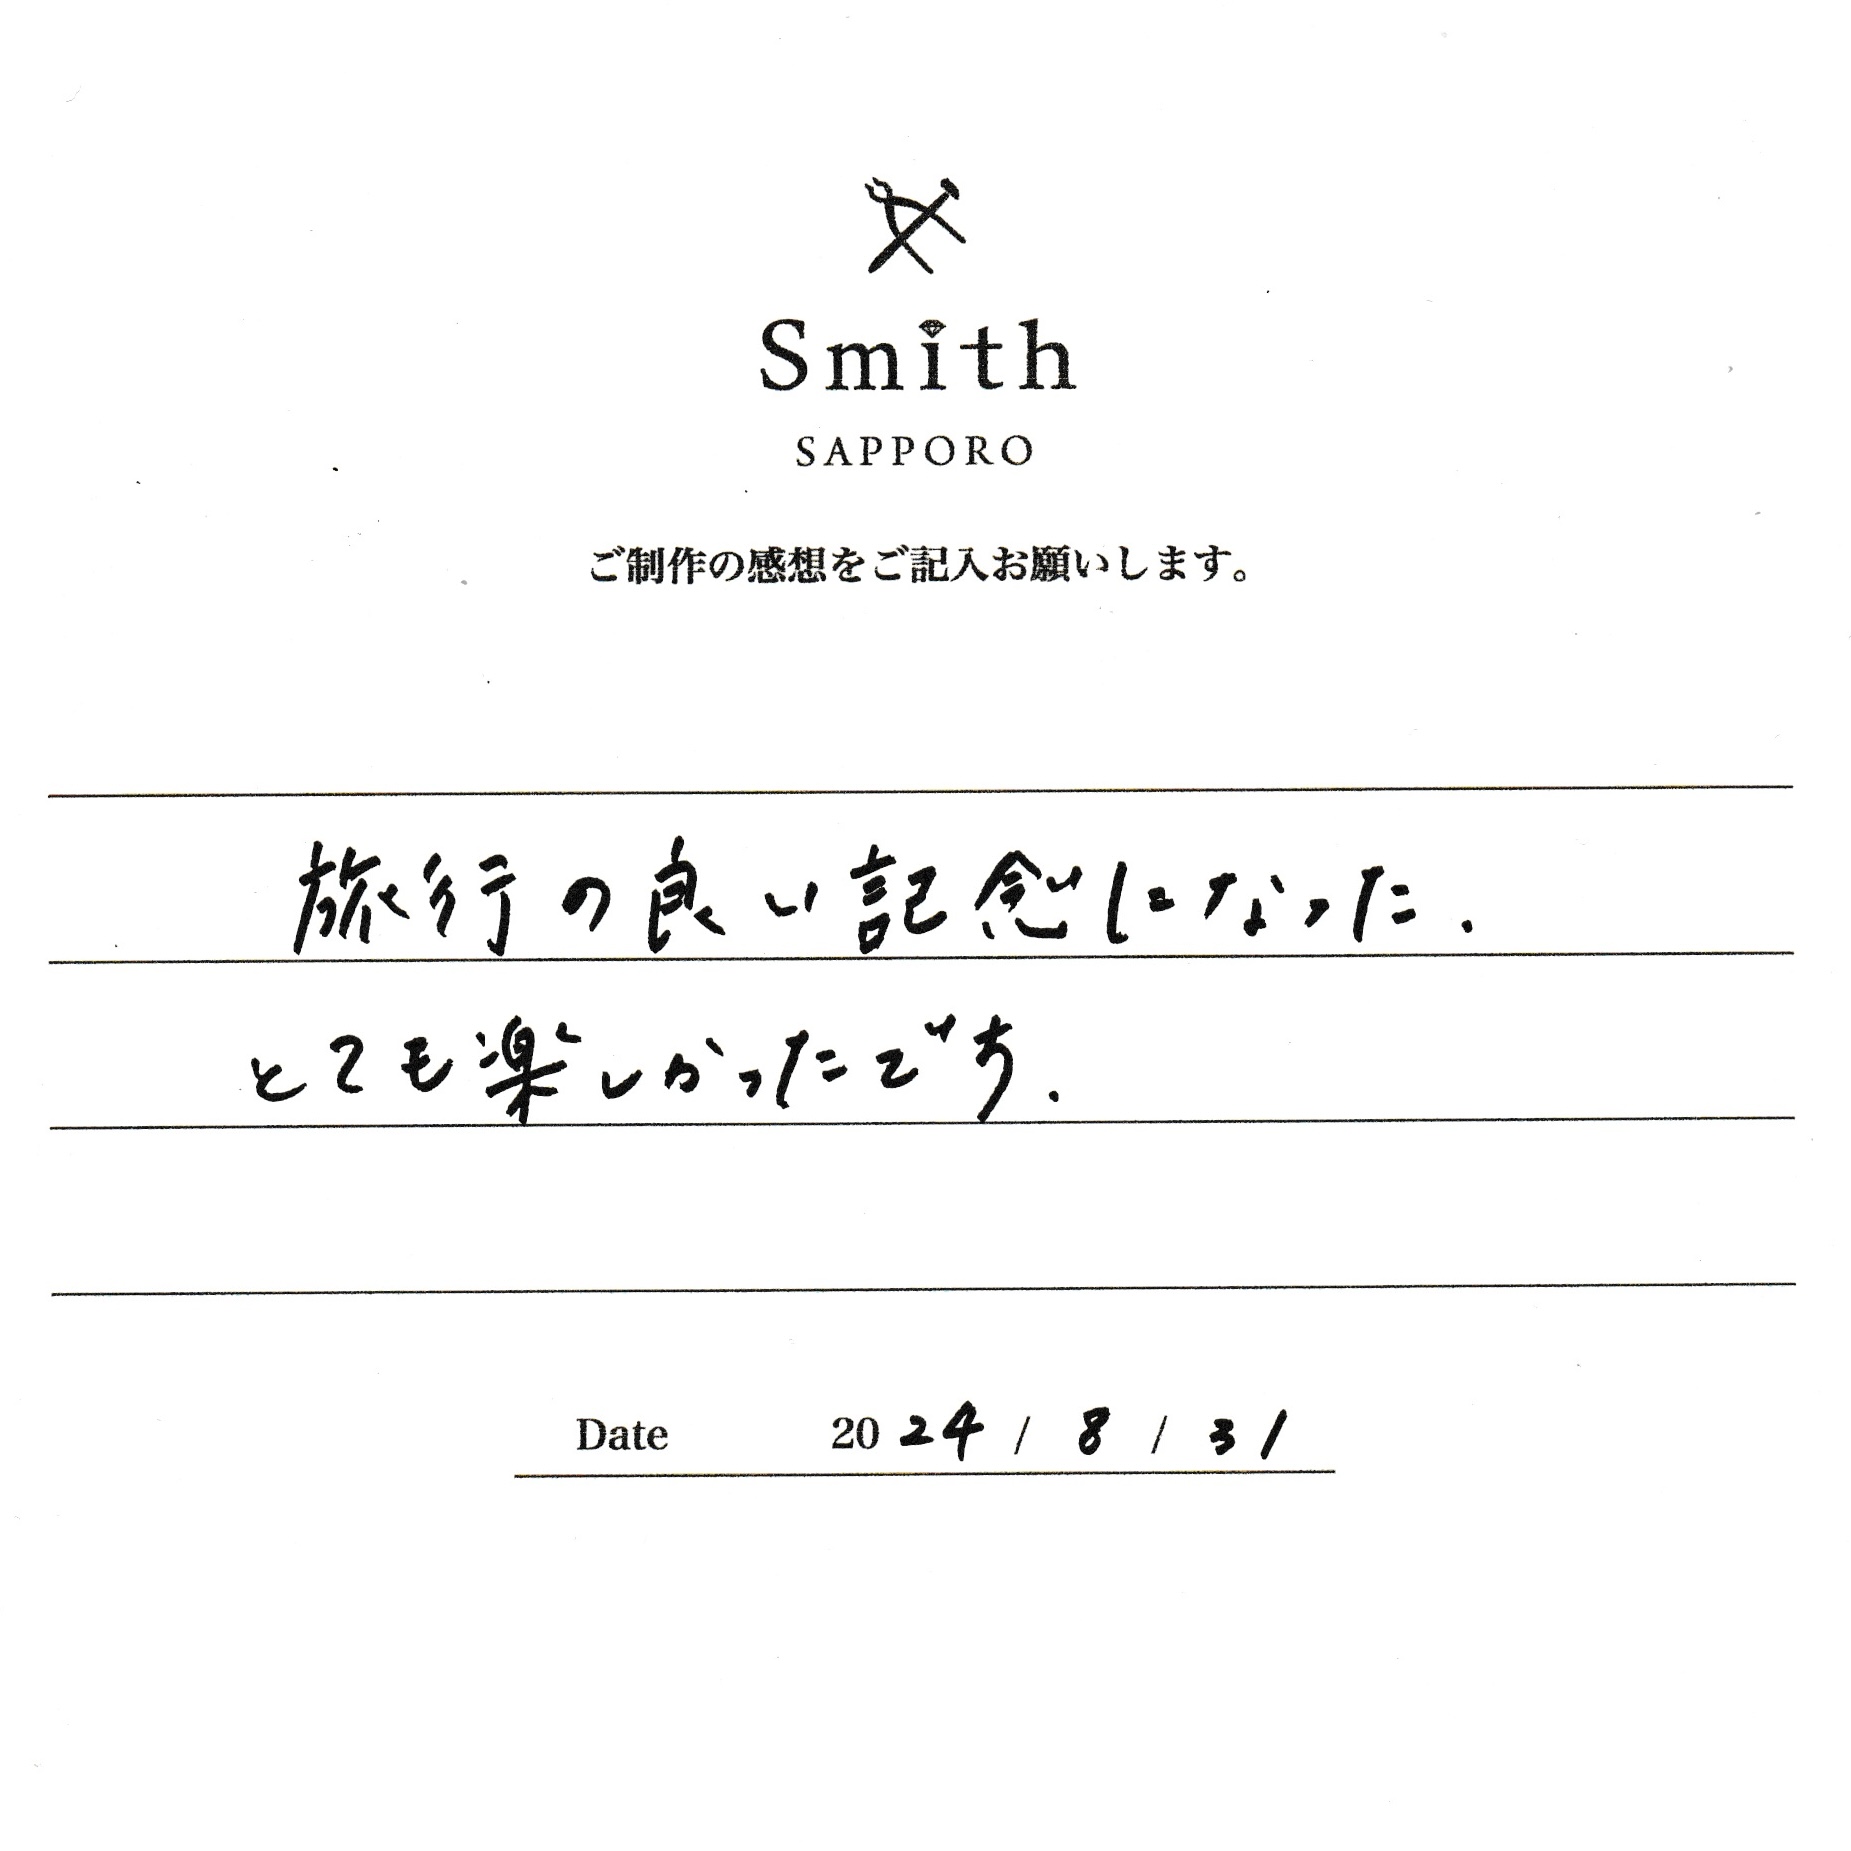 Smith
SAPPORO
ご制作の感想をご記入お願いします。
旅行の良い記念になった.
とても楽しかったです.
Date 2024 / 8 / 31